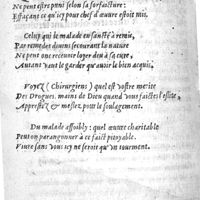 Ne peut estre puni selon sa forfacture:
Estant ce qui icy pour chef d'œuvre estoit mis.
Celuy qui le malade en santé à remis,
Par remedes divins secourant la nature
Ne peut onc recevoir loyer deu à sa cure,
Autant vaut le garder qu'avoir le bien acquis,
Voyez (Chirurgiens) quel est vostre merite
Des Drogues mains de Dieu quand vous faictes l'eslite,
Apprestez & meslez pour le soulagement.
Du malade affoibly: quel œuvre charitable
Peut on parangonner à ce faict pitoyable.
Vivre sans vous icy ne seroit qu'un tourment.